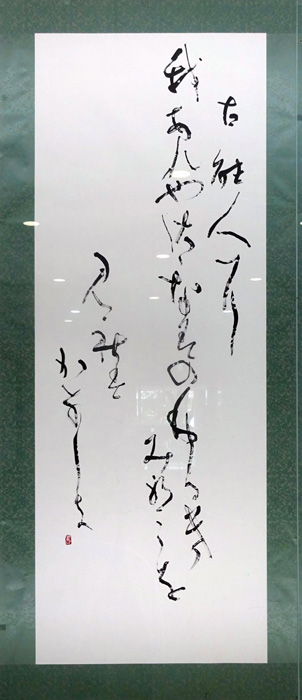 古能人に
我あれやささなみのふるき
みやこを
見れば
かなしき